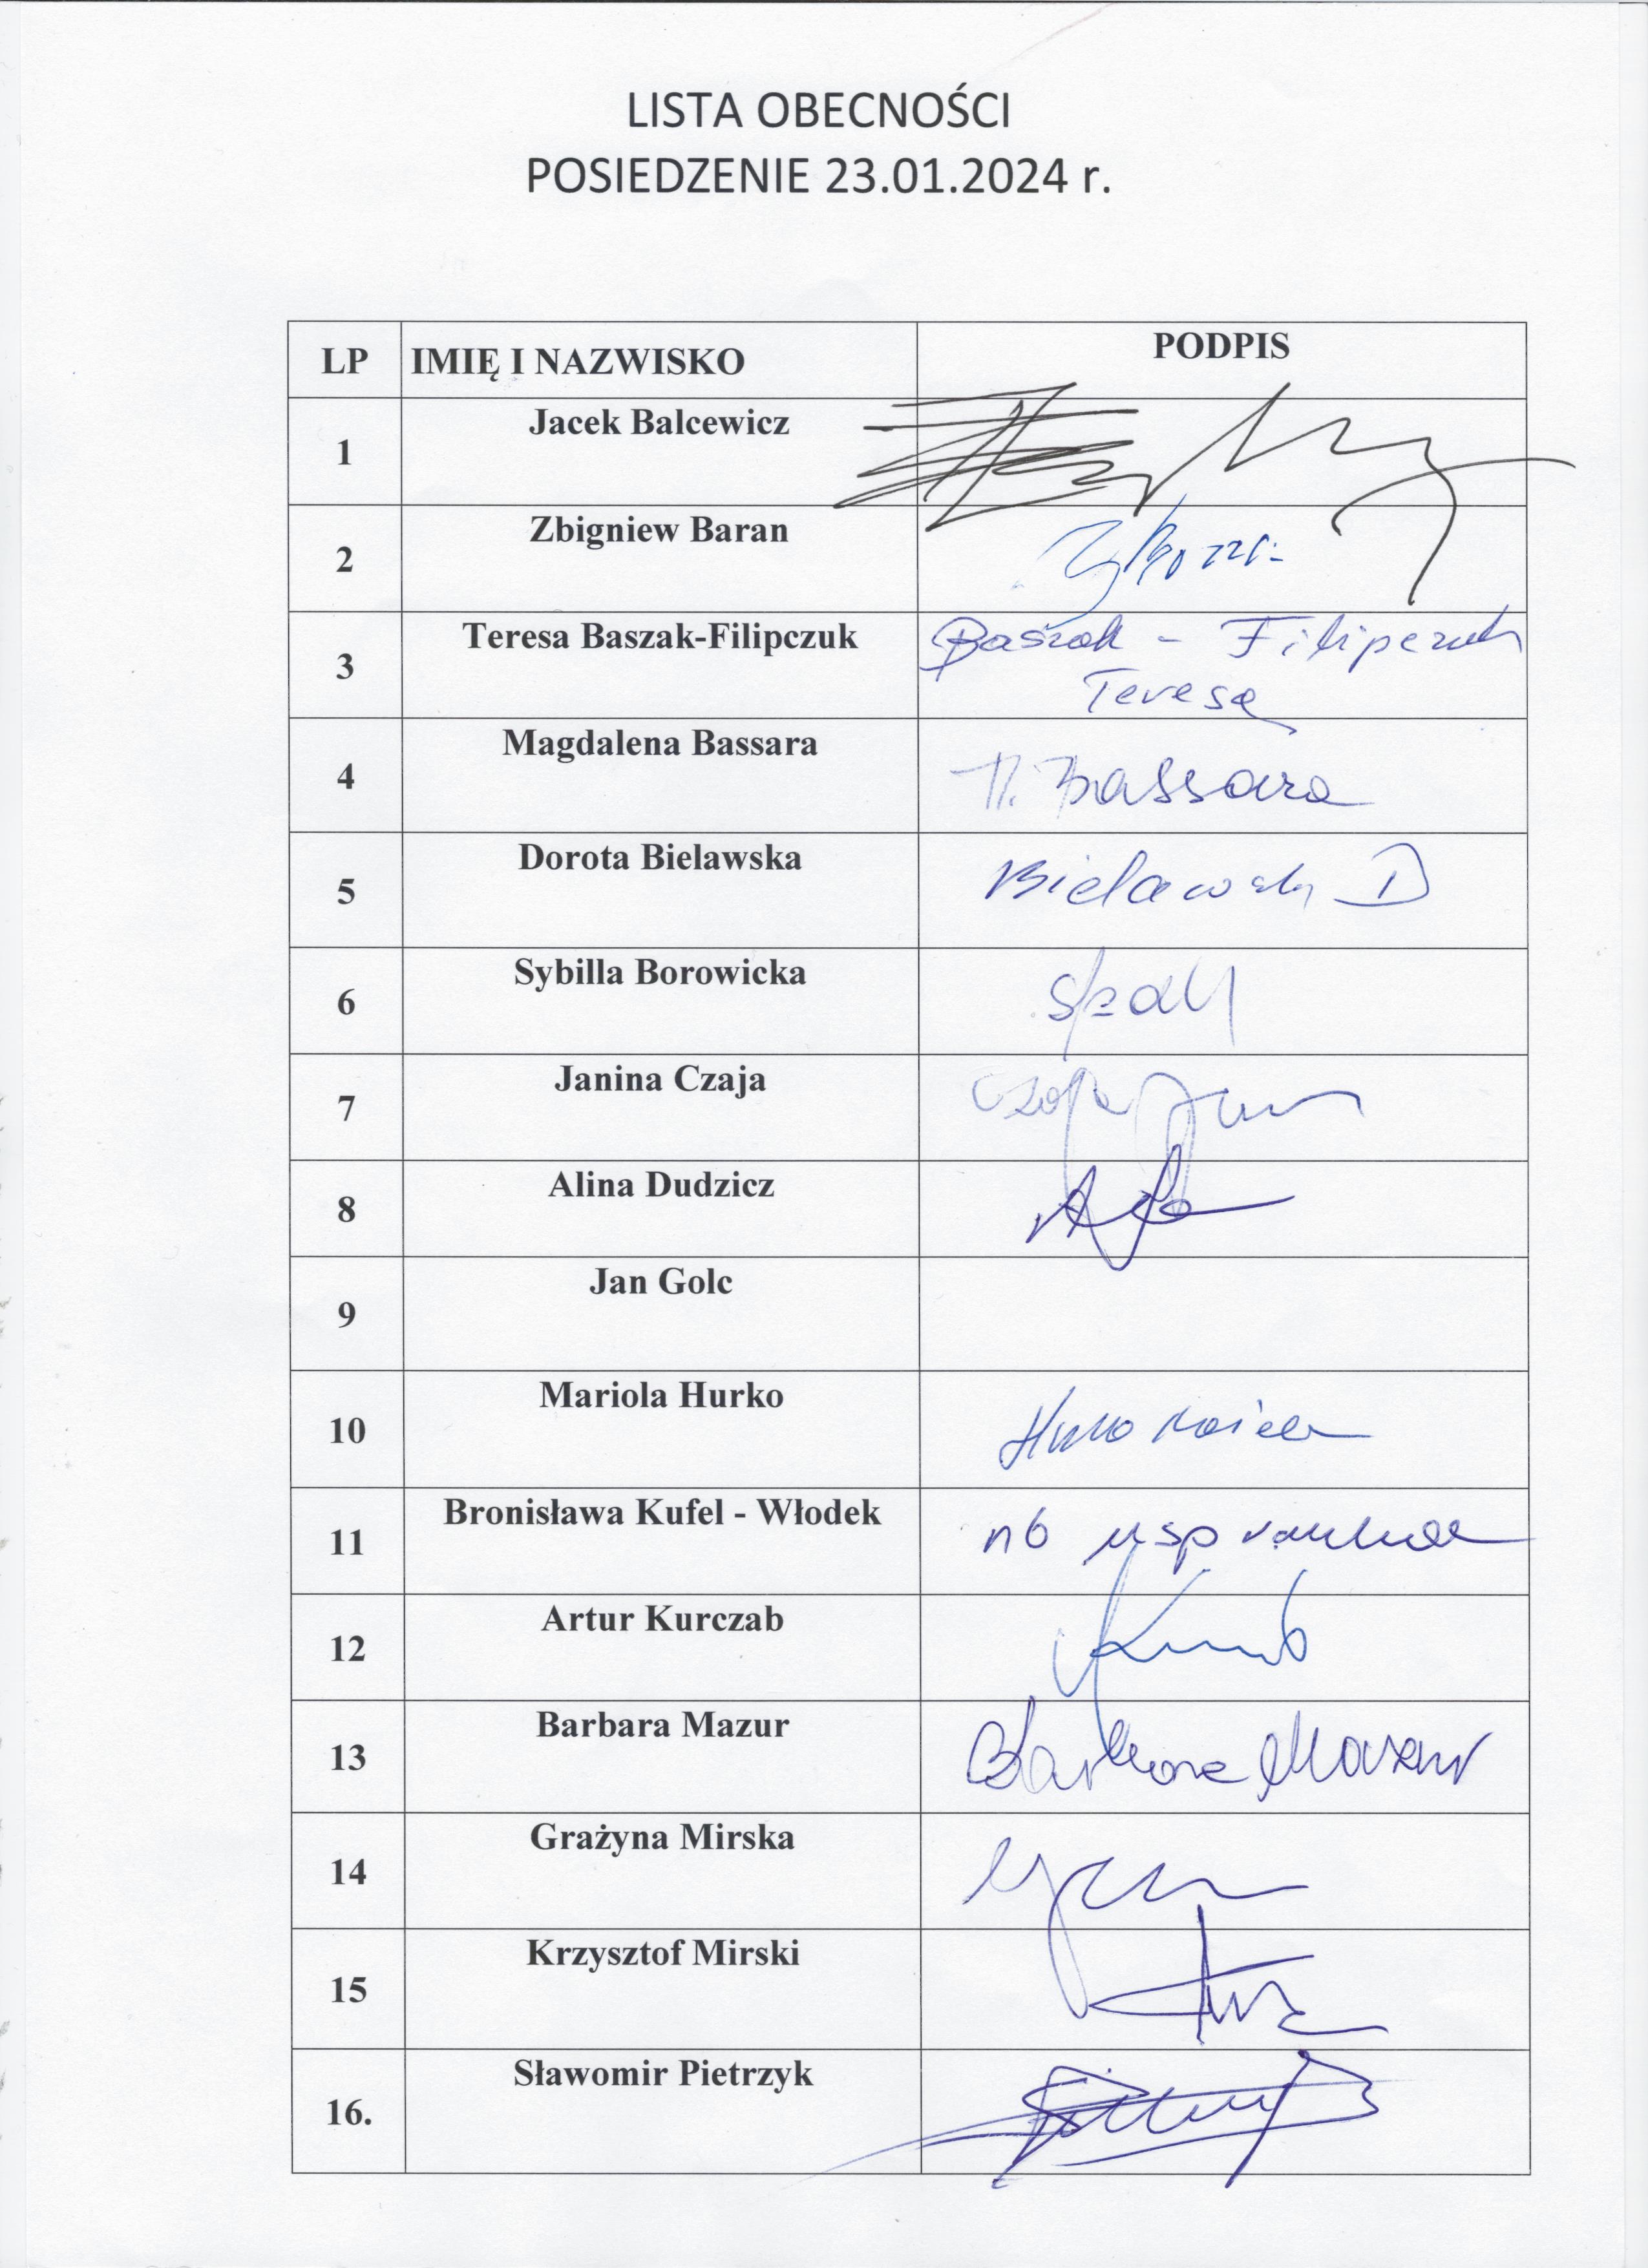 LISTA OBECNOŚCI
POSIEDZENIE 23.01.2024 r.
LP IMIĘ I NAZWISKO PODPIS
1 Jacek Balcewicz
2 Zbigniew Baran
3 Teresa Baszak-Filipczuk Baszak - Filipczuk
Teresa
4 Magdalena Bassara M. Bassara
5 Dorota Bielawska Bielawska D
6 Sybilla Borowicka
7 Janina Czaja Czaja
8 Alina Dudzicz
9 Jan Golc
10 Mariola Hurko Hurko
11 Bronisława Kufel - Włodek nb
12 Artur Kurczab
13 Barbara Mazur Barbara Mazur
14 Grażyna Mirska
15 Krzysztof Mirski
16. Sławomir Pietrzyk